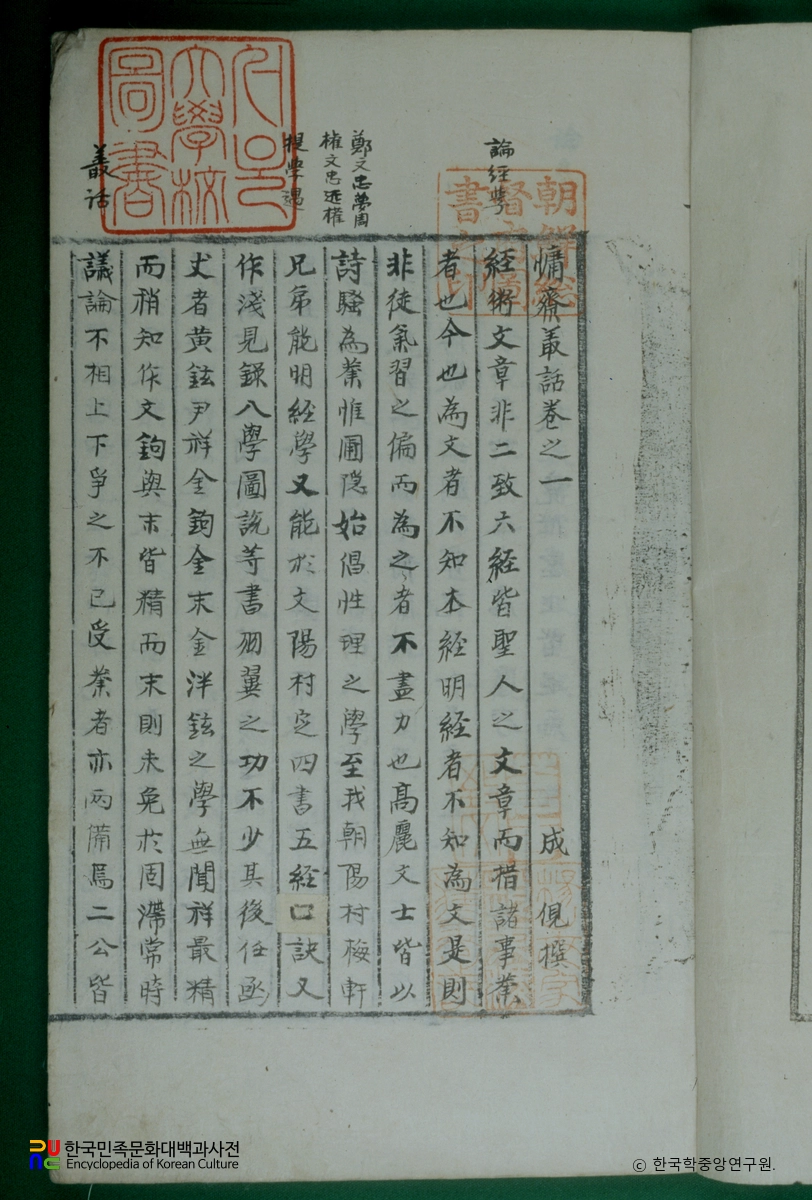 論経學
鄭文忠夢周
權文忠近權
提學遇
叢話
서울
大學校
圖書
朝鮮總
督府圖
書之印
慵齋叢話卷之一 成俔撰
經術文章非二致六経皆聖人之文章而措諸事業
者也今也為文者不知本経明経者不知為文是則
非徒氣習之偏而為之者不盡力也髙麗文士皆以
詩騷為業惟圃隠始倡性理之學至我朝陽村梅軒
兄弟能明経學又能於文陽村㝎四書五経口訣又
作淺見錄入學圖説等書羽翼之功不少其後任函
丈者黄鉉尹祥金鉤金末金泮鉉之學無聞祥最精
而稍知作文鉤與末皆精而末則未免於固滯常時
議論不相上下爭之不已受業者亦両備焉二公皆
한국민족문화대백과사전
Encyclopedia of Korean Culture
© 한국학중앙연구원.